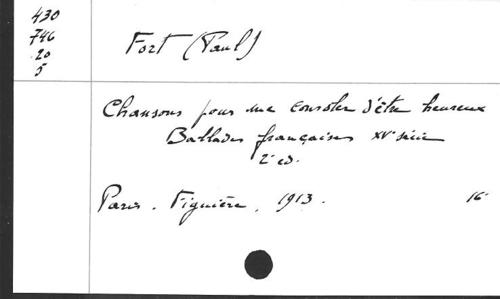 430
746
20
5
Fort (Paul)
Chansons pour me consoler d'être heureux
Ballades françaises XVe série
2e ed.
Paris. Figuière, 1913.
16